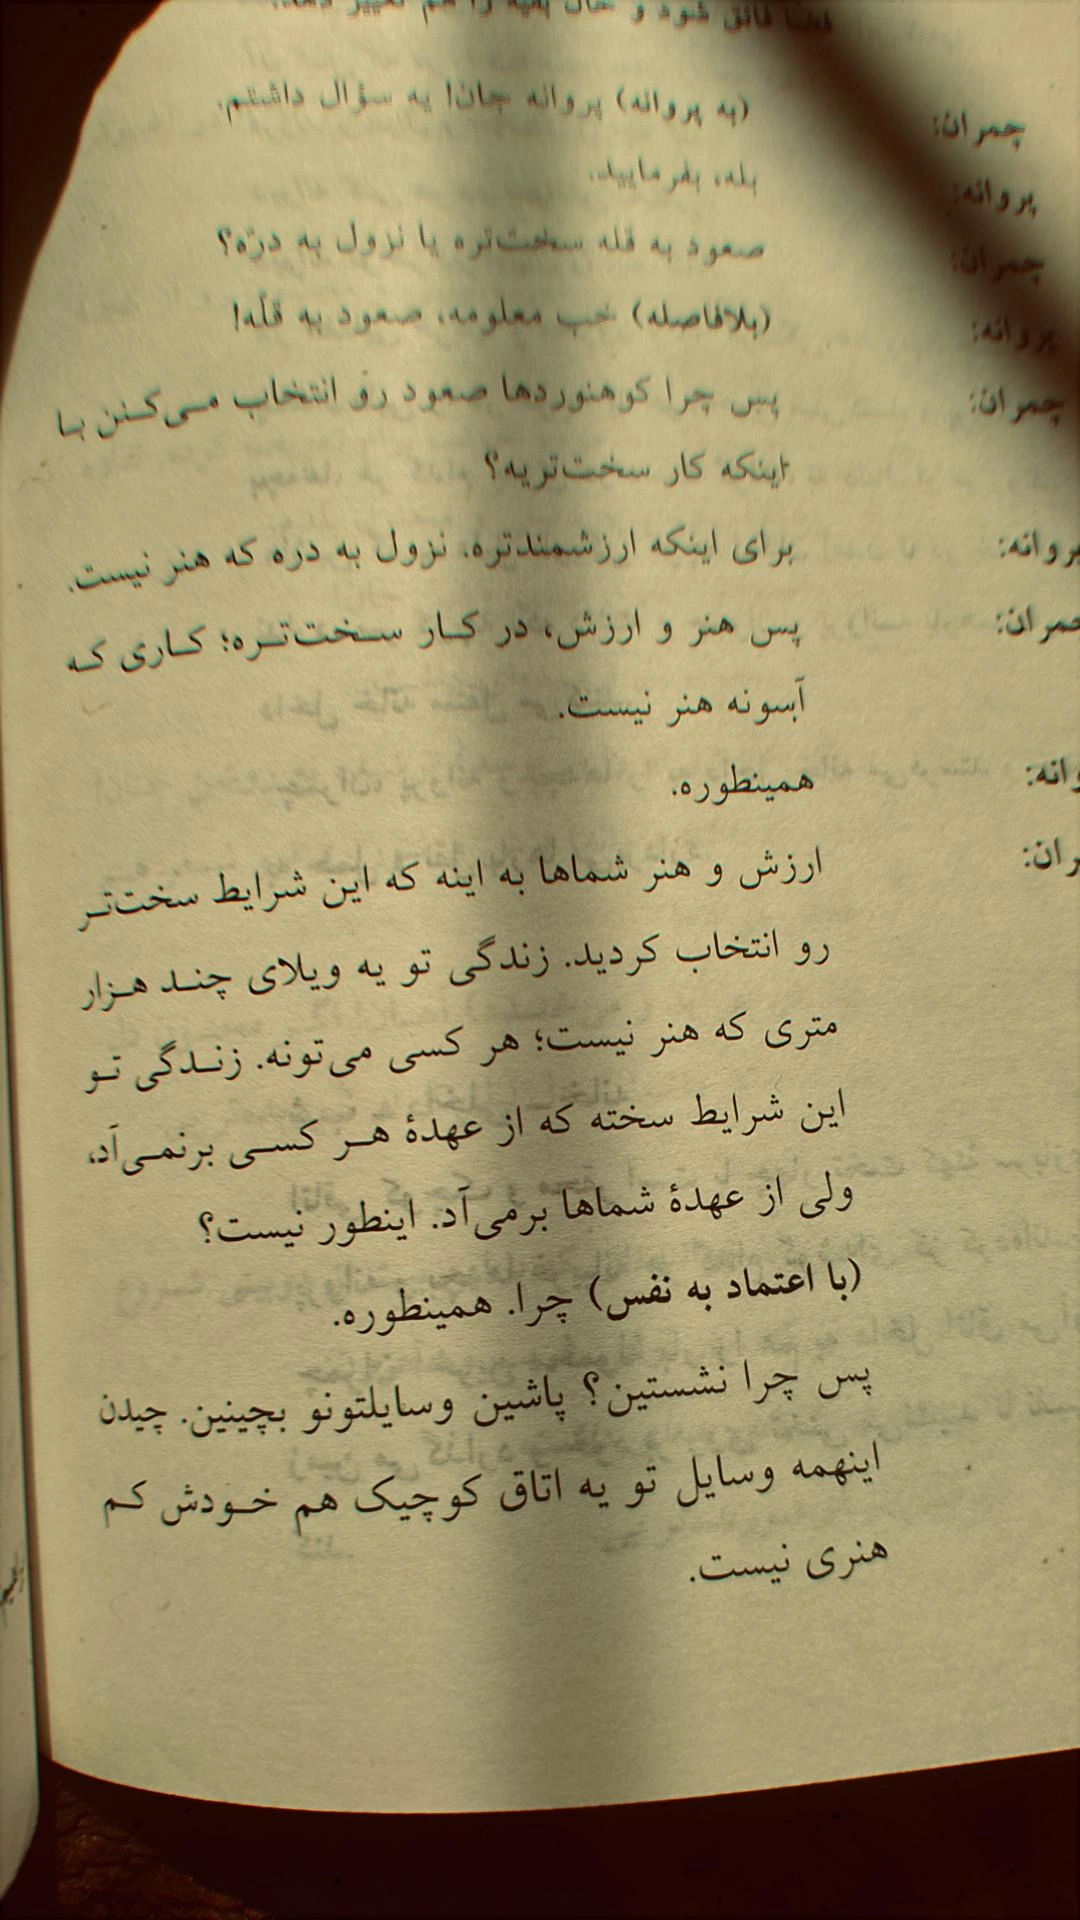 فضا فائق شود و حال بقیه را هم تغییر دهد.
چمران: (به پروانه) پروانه جان! یه سؤال داشتم.
پروانه: بله، بفرمایید.
چمران: صعود به قله سخت‌تره یا نزول به درّه؟
پروانه: (بلافاصله) خب معلومه، صعود به قلّه!
چمران: پس چرا کوهنوردها صعود رو انتخاب می‌کنن با
اینکه کار سخت‌تریه؟
پروانه: برای اینکه ارزشمندتره. نزول به دره که هنر نیست.
چمران: پس هنر و ارزش، در کار سخت‌تره؛ کاری که
آسونه هنر نیست.
وانه: همینطوره.
ران: ارزش و هنر شماها به اینه که این شرایط سخت‌تر
رو انتخاب کردید. زندگی تو یه ویلای چند هزار
متری که هنر نیست؛ هر کسی می‌تونه. زندگی تو
این شرایط سخته که از عهدهٔ هر کسی برنمی‌آد،
ولی از عهدهٔ شماها برمی‌آد. اینطور نیست؟
(با اعتماد به نفس) چرا. همینطوره.
پس چرا نشستین؟ پاشین وسایلتونو بچینین. چیدن
اینهمه وسایل تو یه اتاق کوچیک هم خودش کم
هنری نیست.